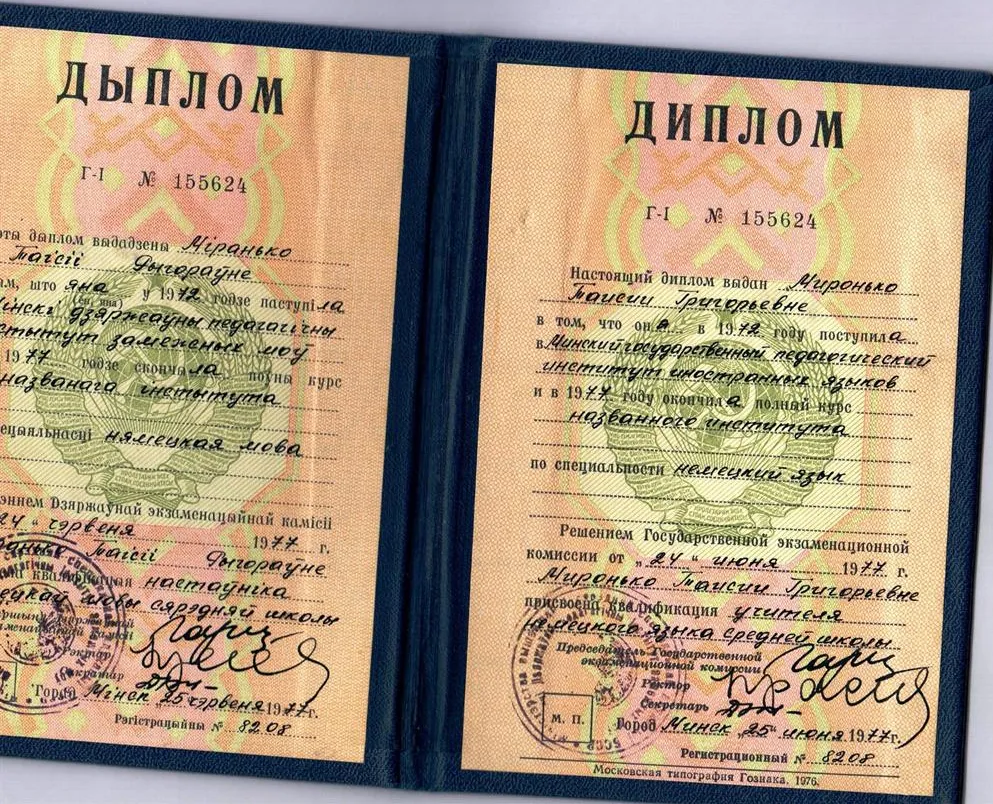 ДЫПЛОМ
Г-I № 155624
дыплом выдадзены Міранько
Таісіі Рыгораўне
што яна у 1972 годзе паступіла
(ён, яна)
дзяржаўны педагагічны
замежных моў
1977 годзе скончыла поўны курс
названага інстытута
нямецкая мова
Дзяржаўнай экзаменацыйнай камісіі
24 " чэрвеня 1977 г.
Таісіі Рыгораўне
настаўніка
мовы сярэдняй школы
Рэктар
Сакратар
Горад Мінск 25 чэрвеня 1977 г.
Рэгістрацыйны № 8208
ДИПЛОМ
Г-I № 155624
Настоящий диплом выдан Миронько
Таисии Григорьевне
в том, что она в 1972 году поступила
в Минский государственный педагогический
институт иностранных языков
и в 1977 году окончила полный курс
названного института
по специальности немецкий язык
Решением Государственной экзаменационной
комиссии от „ 24 " июня 1977 г.
Миронько Таисии Григорьевне
присвоена квалификация учителя
немецкого языка средней школы
Председатель Государственной
экзаменационной комиссии
Ректор
Секретарь
М. П.
Город Минск „25" июня 1977 г.
Регистрационный № 8208
Московская типография Гознака. 1976.